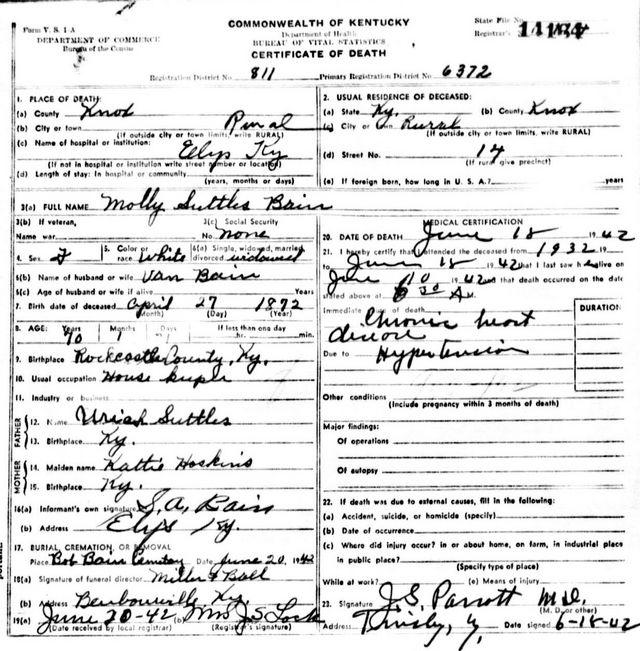 Form V. S. 1-A
DEPARTMENT OF COMMERCE
Bureau of the Census
COMMONWEALTH OF KENTUCKY
Department of Health
BUREAU OF VITAL STATISTICS
CERTIFICATE OF DEATH
State File No.
Registrar's
Registration District No. 811 Primary Registration District No. 6372
1. PLACE OF DEATH:
(a) County Knox
(b) City or town Rural
(If outside city or town limits, write RURAL)
(c) Name of hospital or institution:
Elys Ky
(If not in hospital or institution write street number or location)
(d) Length of stay: In hospital or community
(years, months or days)
2. USUAL RESIDENCE OF DECEASED:
(a) State Ky. (b) County Knox
(c) City or town Rural
(If outside city or town limits, write RURAL)
(d) Street No. 14
(If rural give precinct)
(e) If foreign born, how long in U. S. A.? years
3(a) FULL NAME Molly Suttles Bain
3(b) If veteran,
Name war
3(c) Social Security
No. none
4. Sex F 5. Color or race White 6(a) Single, widowed, married, divorced widowed
6(b) Name of husband or wife Van Bain
6(c) Age of husband or wife if alive Years
7. Birth date of deceased April 27 1872
(Month) (Day) (Year)
8. AGE: Years 70 Months 1 Days If less than one day hr. min.
9. Birthplace Rockcastle County, Ky.
10. Usual occupation House keeper
11. Industry or business
FATHER
12. Name Uriah Suttles
13. Birthplace Ky.
MOTHER
14. Maiden name Kattie Hoskins
15. Birthplace Ky.
16(a) Informant's own signature S. A. Bain
(b) Address Elys Ky.
17. BURIAL, CREMATION, OR REMOVAL
Place Bob Bain Cemetary Date June 20, 1942
18(a) Signature of funeral director Miller & Ball
(b) Address Barbourville Ky.
19(a) June 20-42 (b) Mrs J. S. Lock
(Date received by local registrar) (Registrar's signature)
MEDICAL CERTIFICATION
20. DATE OF DEATH June 18 1942
21. I hereby certify that I attended the deceased from 1932
to June 18 1942 that I last saw h alive on
June 10 1942 and that death occurred on the date
stated above at 6 30 A M.
Immediate cause of death
Chronic heart
disease
Due to Hypertension
DURATION
Other conditions
(Include pregnancy within 3 months of death)
Major findings:
Of operations
Of autopsy
22. If death was due to external causes, fill in the following:
(a) Accident, suicide, or homicide (specify)
(b) Date of occurrence
(c) Where did injury occur? in or about home, on farm, in industrial place
in public place?
(Specify type of place)
While at work? (e) Means of injury
23. Signature J. S. Parrott M.D.
(M. D. or other)
Address Date signed 6-18-42